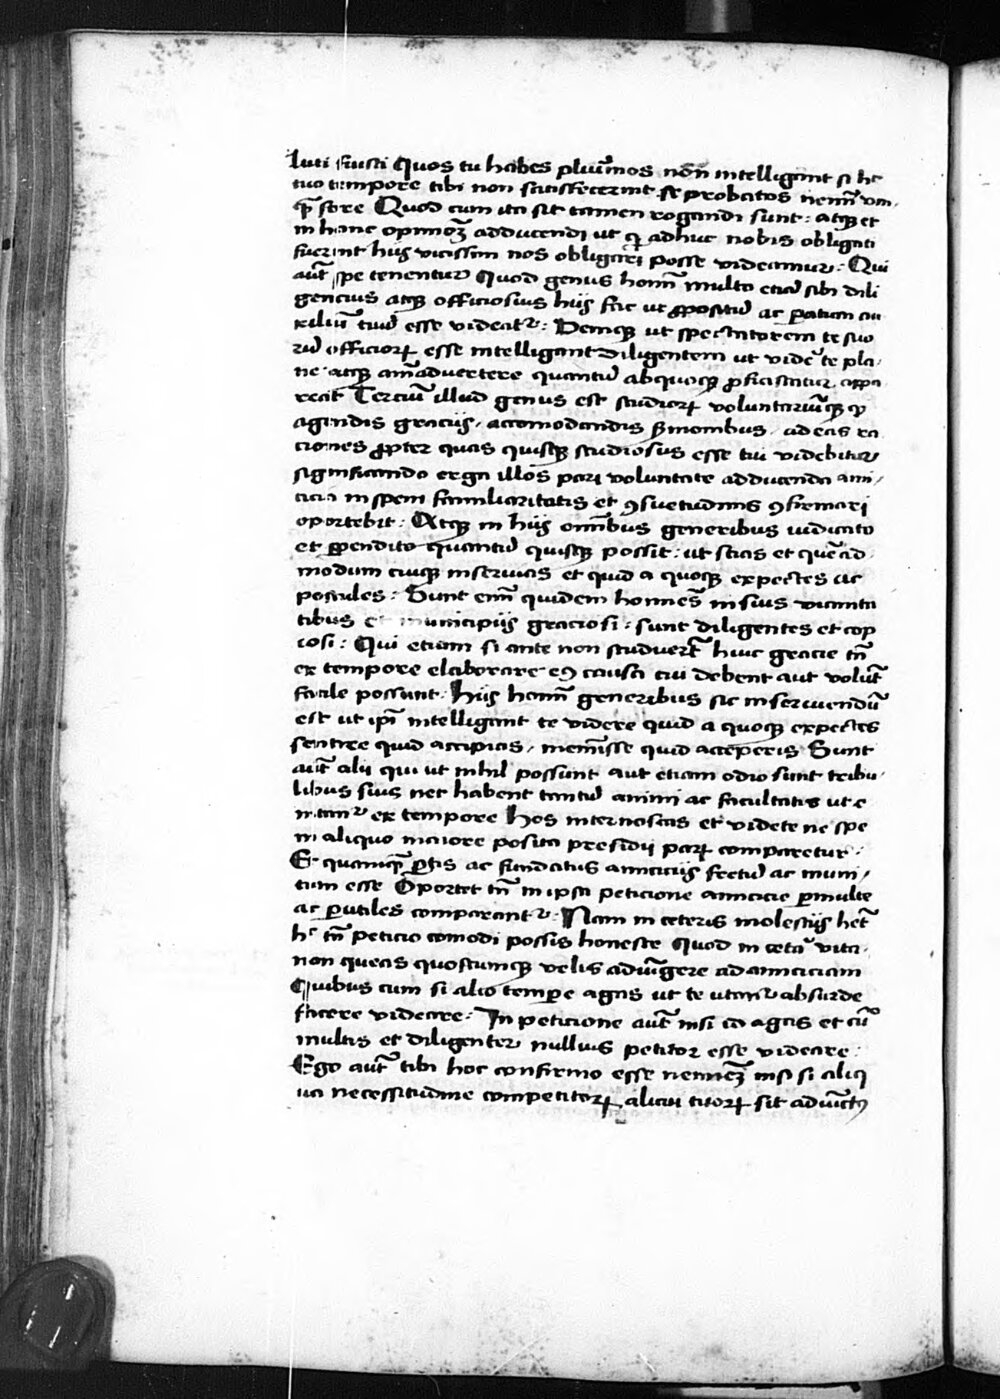 luti fiusti Quos tu habes pluımos non intelligant si hc
tuo tempore tibi non satisfecerint se probatos neminı vn
qᷓ fore Quod cum ita sit tamen rogandi sunt : atqꝫ et
in hanc opinioꝫ adducendi ut qͥ adhuc nobis obligati
fuerint hijs vicissim nos obligari posse videamur : Qui
aut̄ spe tenentur Quod genus homı̄ multo etiā sibi dili
gencius atqꝫ officiosius hijs fac ut ꝓpositū ac paratum au
xiliū tuū esse videatͬ : Deniqꝫ ut spectatorem te suo
rū officioꝝ esse intelligant diligentem ut vide te pla
ne atqꝫ aīaduertere quantū abquoqꝫ ꝓficiscatur appa
reat Terciū illud genus est studioꝝ voluntariūqꝫ qͩ
agendis graciis , accomodandis ẜmonibus , ad eas ra
ciones ꝓpter quas quisqꝫ studiosus esse tui videbitur
significando erga illos pari voluntate adducenda ami
cicia in spem familiaritatis et ꝯsuetudinis ꝯfirmari
oportebit : Atqꝫ in hijs om̄ibus generibus iudicato
et ꝑpendito quantū quisqꝫ possit : ut scias et quēad
modum cuiqꝫ inseruias et quid a quoqꝫ expectes ac
postules : Sunt enī quidem homines in suis vicinita
tibus et municipiis graciosi : sunt diligentes et cop
iosi : Qui etiam si ante non studuerūt huic gracie tn̄
ex tempore elaborare eiꝯ causa cui debent aut volūt
facile possunt : Hijs homı̄ generibus sic inseruiendū
est ut ipı̄ intelligant te videre quid a quoqꝫ expectes
sentire quid accipias , meminisse quid acceperis Sunt
aut̄ alii qui ut nihil possunt aut etiam odio sunt tribu
libus suis nec habent tantū animi ac facultatis ut e
nitanͬ ex tempore Hos internoscas et videte ne spe
in aliquo maiore posita presidij paꝝ comparetur :
Et quamqᷓ ꝑtis ac fundatus amiciciis fretū ac muni
tum esse Oportet tn̄ in ipsa peticione amicicie ꝑmulte
ac ꝑutiles comparantͬ : Nam in ceteris molestijs het
hc tn̄ peticio comodi possis honeste Quod in ceta vita
non queas quoscumqꝫ velis adiūgere ad amiciciam
Quibus cum si alio tempore agas ut te utanͬ absurde
facere videare : In peticione aut̄ nisi id agas et cū
multis et diligenter nullius petitor esse videare :
Ego aut̄ tibi hoc confirmo esse neminēꝫ nisi si aliq
ua necessitudine competitoꝝ alicui tuoꝝ sit adiūctꝯ